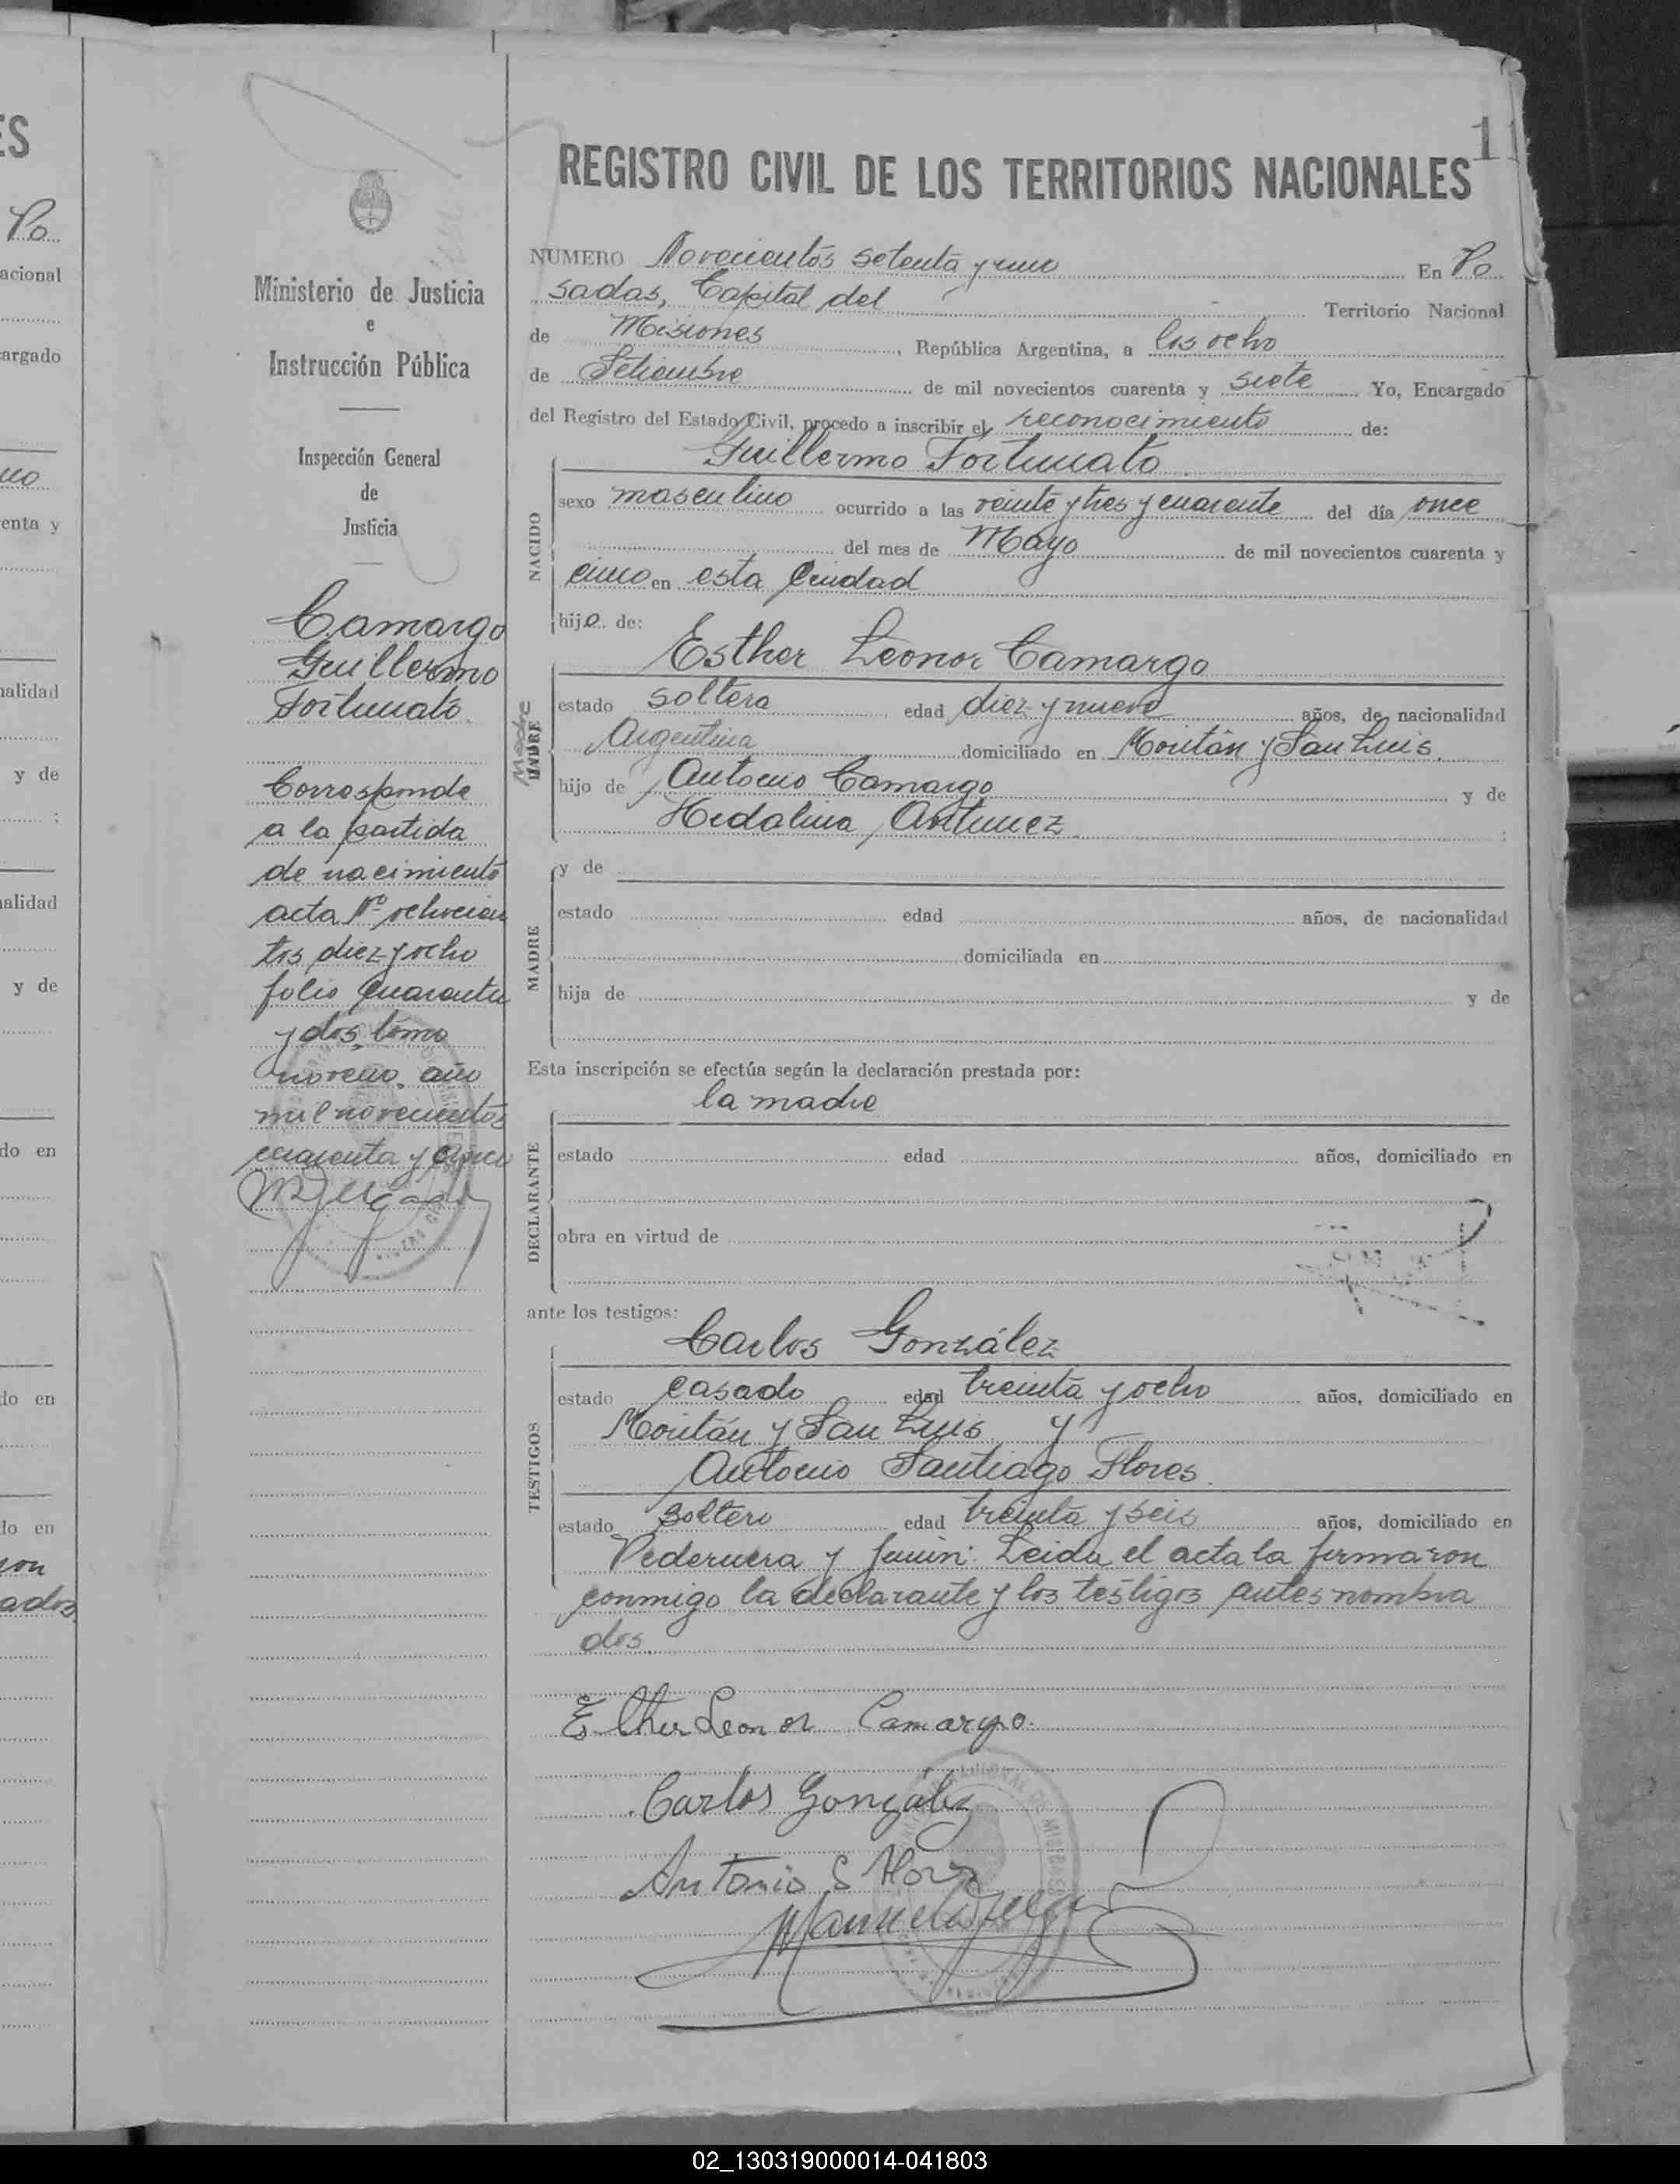 ES
Po
acional
argado
uo
enta y
nalidad
y de
nalidad
y de
do en
do en
do en
ron
ados
Ministerio de Justicia
e
Instrucción Pública
Inspección General
de
Justicia
Camargo
Guillermo
Fortunato
Corresponde
a la partida
de nacimiento
acta Nº ochocien
tos diez y ocho
folio cuarenta
y dos, tomo
noveno, año
mil novecientos
cuarenta y cinco
1
REGISTRO CIVIL DE LOS TERRITORIOS NACIONALES
NUMERO Novecientos setenta y uno En Po
sadas, Capital del Territorio Nacional
de Misiones, República Argentina, a los ocho
de Setiembre de mil novecientos cuarenta y siete Yo, Encargado
del Registro del Estado Civil, procedo a inscribir el reconocimiento de:
Guillermo Fortunato
NACIDO
sexo masculino ocurrido a las veinte y tres y cuarente del día once
del mes de Mayo de mil novecientos cuarenta y
cinco en esta Ciudad
hijo de:
Esther Leonor Camargo
Madre
estado soltera edad diez y nueve años, de nacionalidad
Argentina domiciliado en Roritán y San Luis
hijo de Antonio Camargo y de
Hedolina Antunez ;
MADRE
y de
estado edad años, de nacionalidad
domiciliada en
hija de y de
Esta inscripción se efectúa según la declaración prestada por:
la madre
DECLARANTE
estado edad años, domiciliado en
obra en virtud de
ante los testigos:
Carlos González
TESTIGOS
estado casado edad treinta y ocho años, domiciliado en
Roritán y San Luis y
Antonio Santiago Flores
estado soltero edad treinta y seis años, domiciliado en
Pedernera y Junín: Leida el acta la firmaron
conmigo la declarante y los testigos antes nombra
dos
Esther Leonor Camargo.
Carlos González
Antonio S Flores
02_130319000014-041803